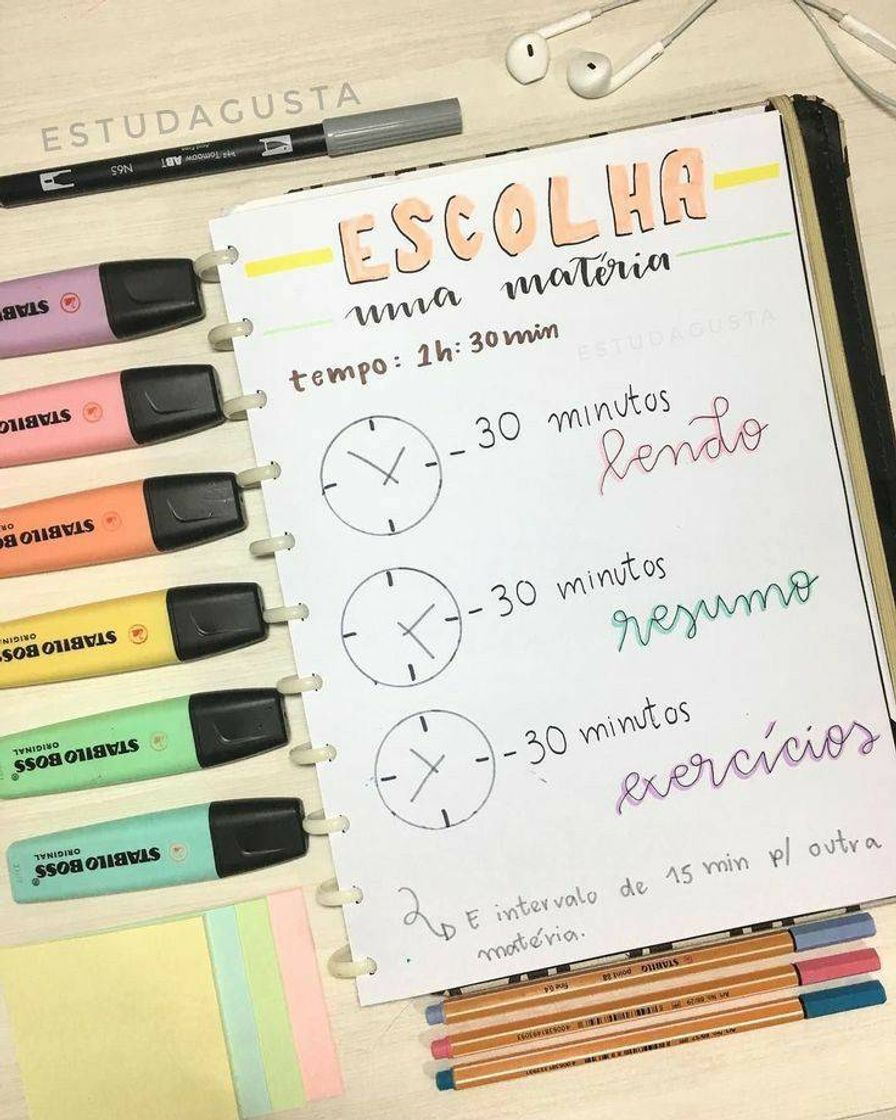 ESTUDAGUSTA
N65 ABT Tombow
ESCOLHA
uma matéria
ESTUDAGUSTA
tempo: 1h:30min
- 30 minutos
lendo
- 30 minutos
resumo
- 30 minutos
exercícios
E intervalo de 15 min p/ outra
matéria.
STABI
STABILO
STABILO B
OR
STABILO BOSS
ORIGIN
STABILO BOSS
ORIGINAL
STABILO BOSS
ORIGINAL
STABILO point 88 fine 0,4